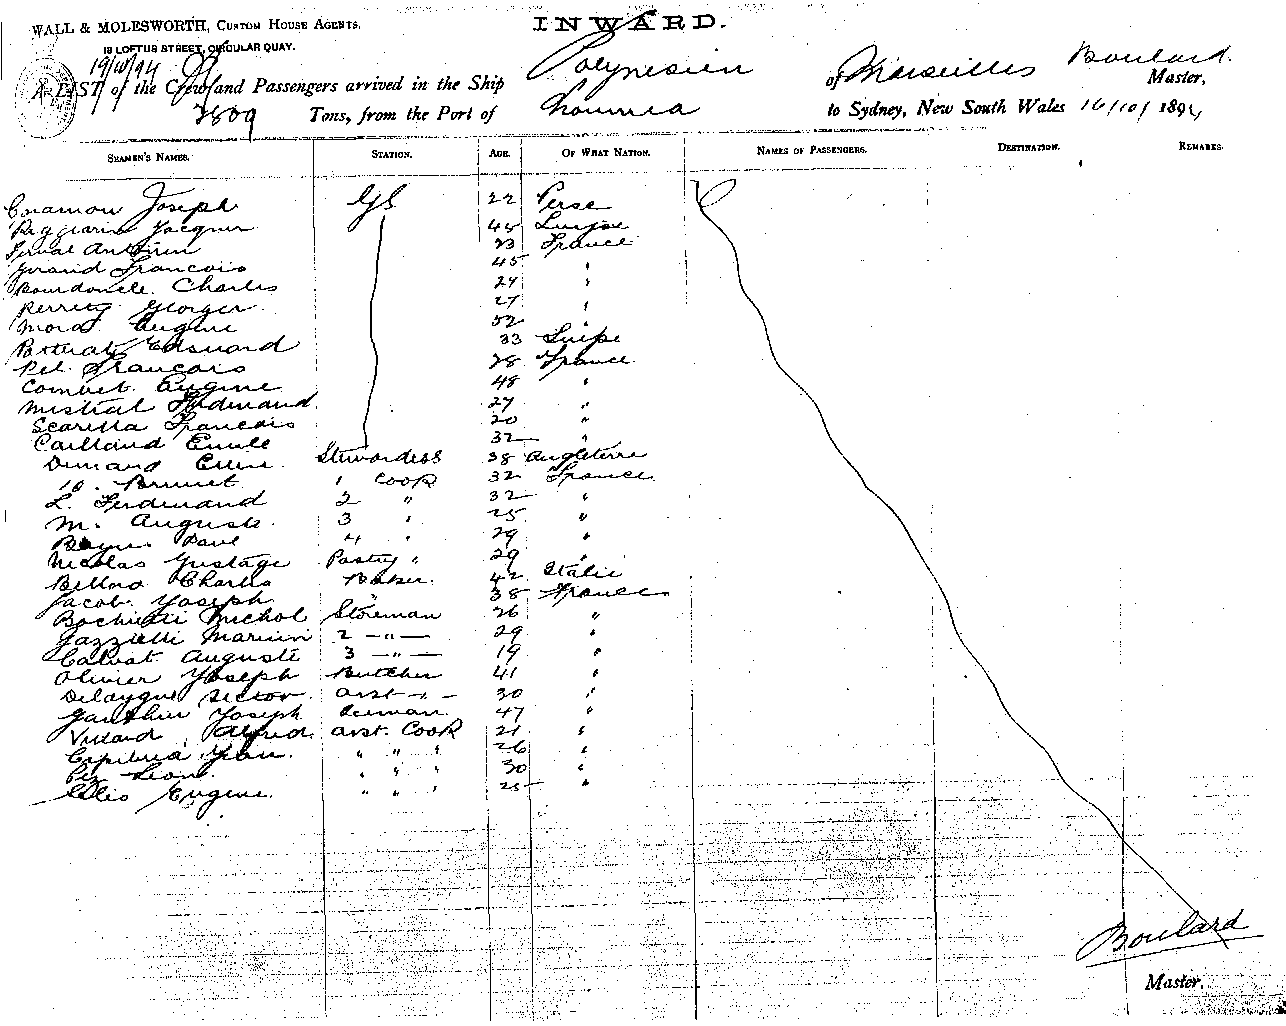 WALL & MOLESWORTH, CUSTOM HOUSE AGENTS.
INWARD.
18 LOFTUS STREET, CIRCULAR QUAY.
19/10/94
A LIST of the Crew and Passengers arrived in the Ship Polynesien of Marseilles Boulard Master,
2809 Tons, from the Port of Noumea to Sydney, New South Wales 16/10/1894
SEAMEN'S NAMES. STATION. AGE. OF WHAT NATION. NAMES OF PASSENGERS. DESTINATION. REMARKS.
Joseph GS 22 Perse
Jacques 45
23 France
Girand Francois 45 "
Charles 24 "
27 "
Eugene 52 "
Edouard 33 Suisse
Francois 28 France
Combet Eugene 48 "
Mistral Ferdinand 27 "
Francois 20 "
Cailland Emile 32 "
Stewardess 38 Angleterre
Brunet 1 Cook 32 France
L. Ferdinand 2 " 32 "
M. Auguste 3 " 25 "
Paul 4 " 29 "
Nicolas Gustave Pastry " 29 "
Charles Baker 42 Italie
Jacob Joseph " 38 France
Michel Storeman 26 "
2 — " — 29 "
Calvat Auguste 3 — " — 19 "
Olivier Joseph Butcher 41 "
asst — " — 30 "
Gauthier Joseph 47 "
Alfred asst. Cook 21 "
" " " 26 "
Leon " " " 30 "
Eugene " " " 25 "
Boulard
Master.